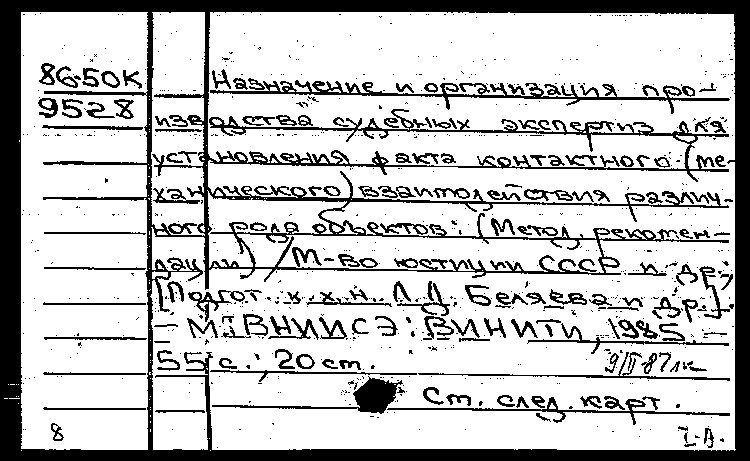 86-50К
9528
Назначение и организация про-
изводства судебных экспертиз для
установления факта контактного (ме-
ханического) взаимодействия различ-
ного рода объектов: (Метод. рекомен-
дации) / М-во юстиции СССР и др.;
[Подгот. к.х.н. Л.Д. Беляева и др.].
– М.: ВНИИСЭ: ВИНИТИ, 1985. –
55 с.; 20 см.
9/II-87
Ст. след. карт.
8